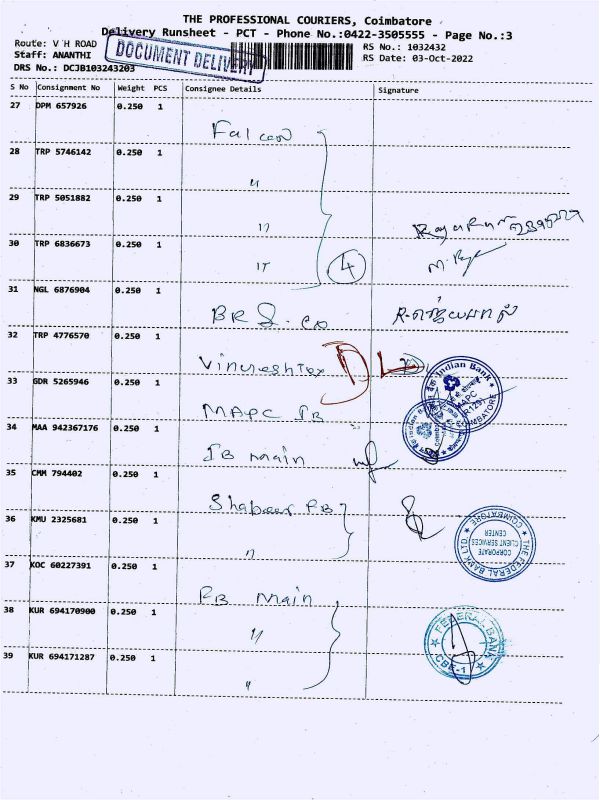 THE PROFESSIONAL COURIERS, Coimbatore
Delivery Runsheet - PCT - Phone No.:0422-3505555 - Page No.:3
Route: V H ROAD
RS No.: 1032432
Staff: ANANTHI
DOCUMENT DELIVERY
RS Date: 03-Oct-2022
DRS No.: DCJB103243203
S No Consignment No Weight PCS Consignee Details Signature
27 DPM 657926 0.250 1
Falcon
28 TRP 5746142 0.250 1
"
29 TRP 5051882 0.250 1
"
30 TRP 6836673 0.250 1
" 4
31 NGL 6876904 0.250 1
BRS. Co
32 TRP 4776570 0.250 1
DL
33 GDR 5265946 0.250 1
MAPC IB
Indian Bank
MAPC
COIMBATORE
34 MAA 942367176 0.250 1
IB main
35 CMM 794402 0.250 1
Shabeer FB
36 KMU 2325681 0.250 1
"
THE FEDERAL BANK LTD
CORPORATE
CLIENT SERVICES
CENTER
COIMBATORE
37 KOC 60227391 0.250 1
FB Main
38 KUR 694170900 0.250 1
"
FEDERAL BANK
CBE-1
39 KUR 694171287 0.250 1
"